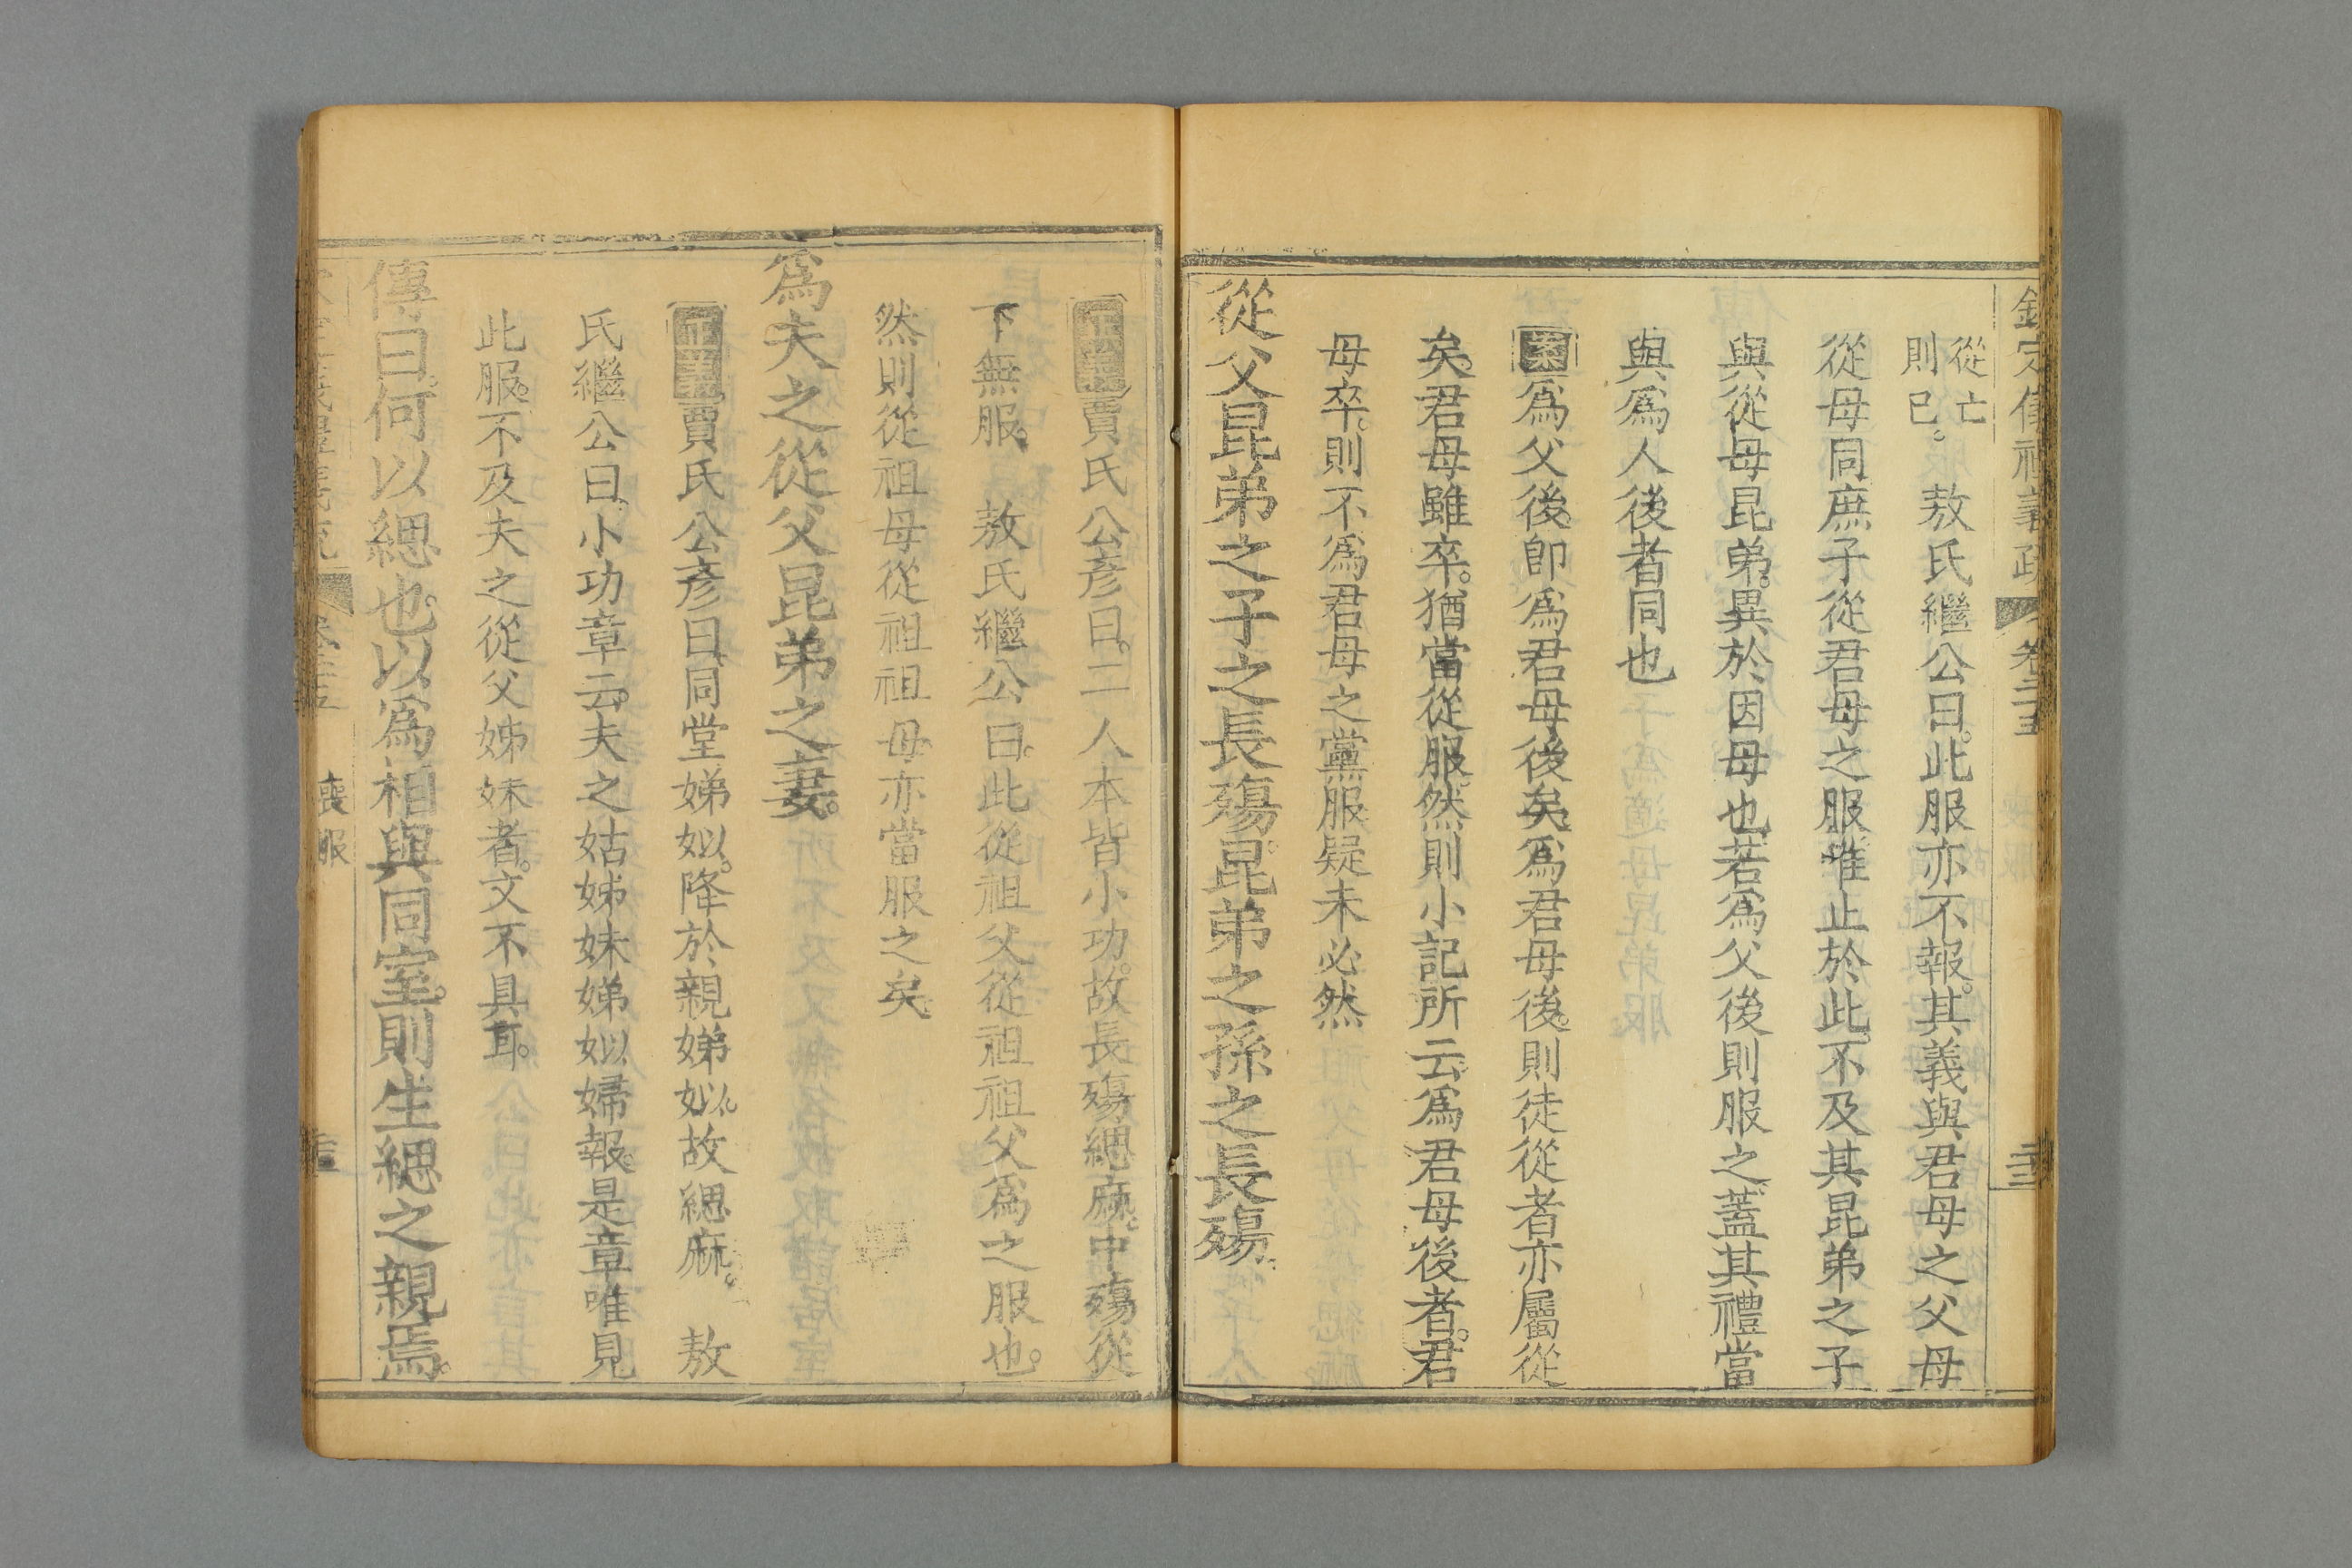 從亡
則已。敖氏繼公曰。此服亦不報。其義與君母之父母
從母同。庶子從君母之服。唯止於此。不及其昆弟之子
與從母昆弟。異於因母也。若爲父後則服之。蓋其禮當
與爲人後者同也
案爲父後。卽爲君母後矣。爲君母後。則徒從者亦屬從
矣。君母雖卒。猶當從服。然則小記所云。爲君母後者。君
母卒。則不爲君母之黨服。疑未必然
從父昆弟之子之長殤。昆弟之孫之長殤。
正義賈氏公彥曰。二人本皆小功。故長殤緦麻。中殤從
下無服。 敖氏繼公曰。此從祖父從祖祖父爲之服也。
然則從祖母從祖祖母亦當服之矣。
爲夫之從父昆弟之妻。
正義賈氏公彥曰。同堂娣姒。降於親娣姒。故緦麻。 敖
氏繼公曰。小功章云。夫之姑姊妹娣姒婦報。是章唯見
此服。不及夫之從父姊妹者。文不具耳。
傳曰。何以緦也。以爲相與同室。則生緦之親焉。
喪服